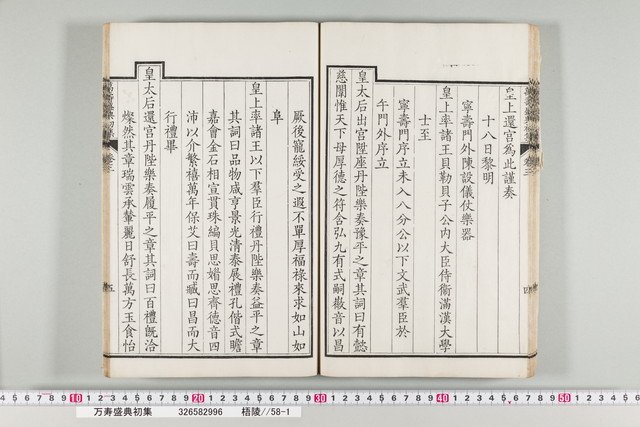 皇上還宮為此謹奏
十八日黎明
寧壽門外陳設儀仗樂器
皇上率諸王貝勒貝子公內大臣侍衞滿漢大學
士至
寧壽門序立未入八分公以下文武羣臣於
午門外序立
皇太后出宮陞座丹陛樂奏豫平之章其詞曰有懿
慈闈惟天下母厚德之符含弘九有式嗣徽音以昌
厥後寵綏受之遐不單厚福祿來求如山如
阜
皇上率諸王以下羣臣行禮丹陛樂奏益平之章
其詞曰品物咸亨景光清泰展禮孔偕式瞻
嘉會金石相宣貫珠編貝思媚思齊德音四
沛以介繁禧萬年保艾曰壽而臧曰昌而大
行禮畢
皇太后還宮丹陛樂奏履平之章其詞曰百禮旣洽
燦然其章瑞雲承輦麗日舒長萬方玉食怡
四
五
10 20 30 40 50
万寿盛典初集 326582996 梧陵//58-1